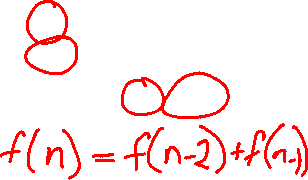 8
∞
f(n) = f(n-2)+f(n-1)